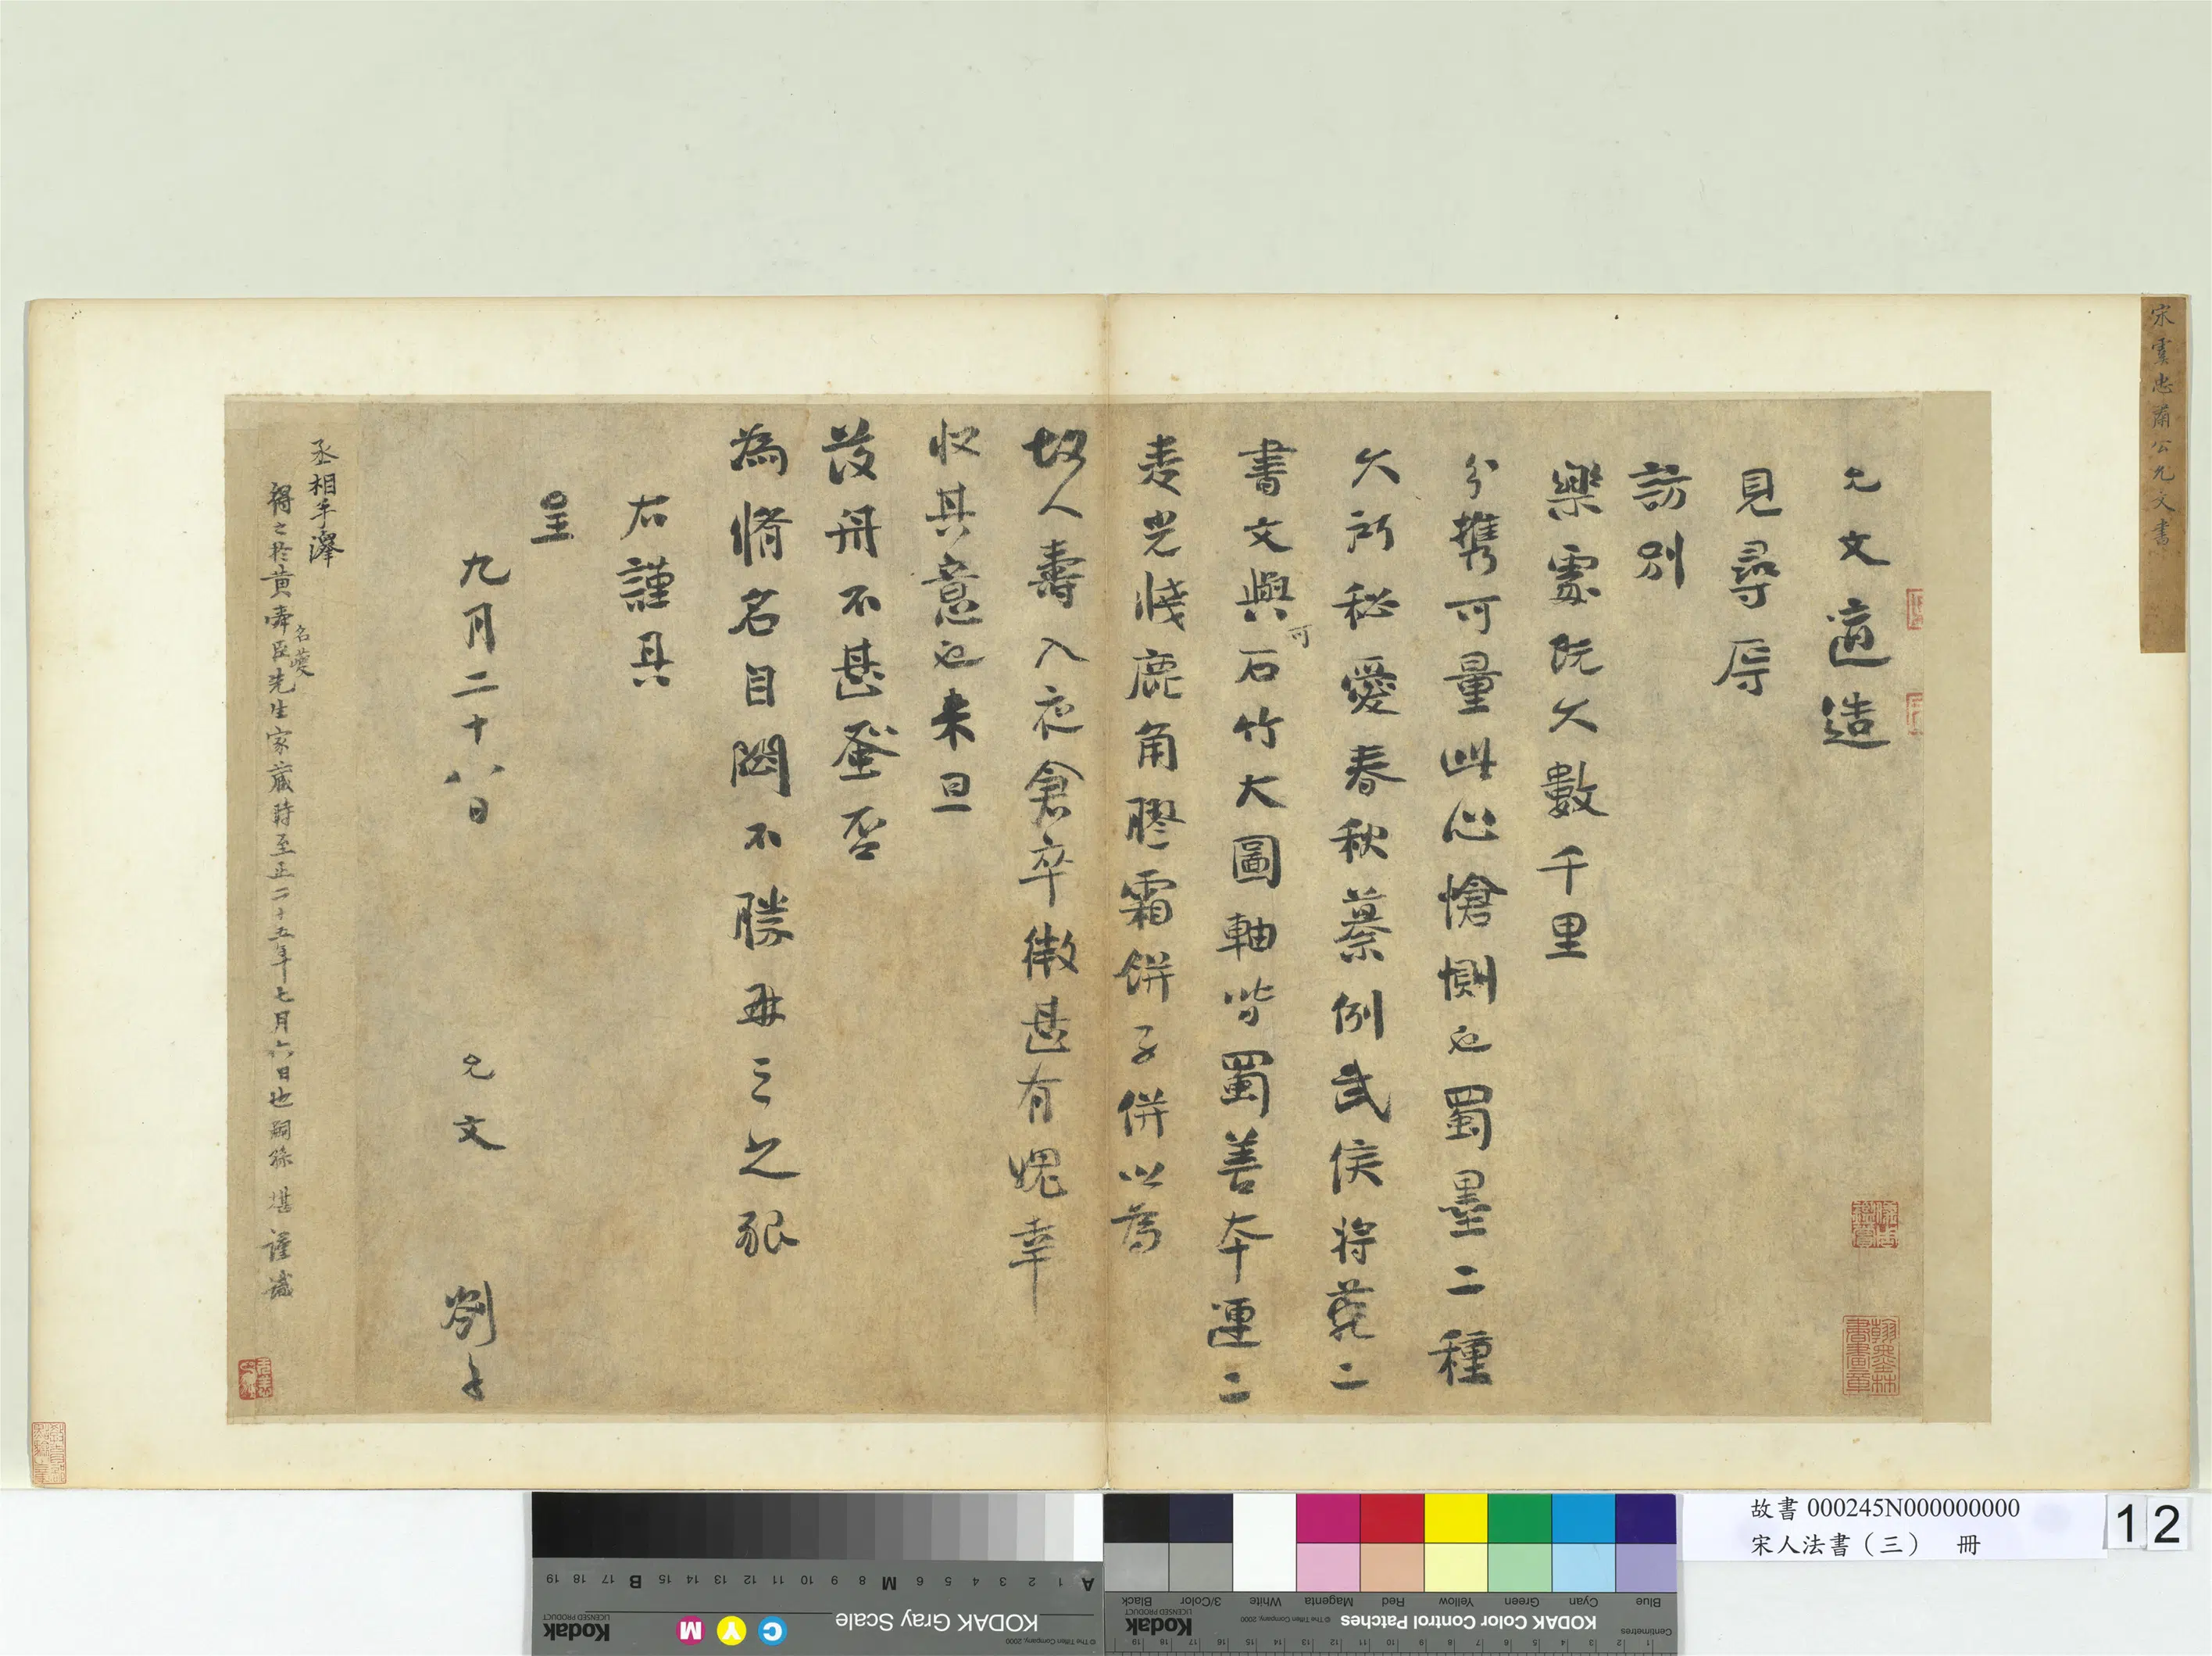 宋虞忠肅公允文書
允文適造
見尋辱
訪別
樂處既久數千里
分攜可量此心愴惻也蜀墨二種
久所秘愛春秋纂例武侯將苑二
書文與可石竹大圖軸皆蜀善本運二
麦光牋鹿角膠霜餅子併以為
故人壽入夜倉卒微甚有愧幸
收其意也来旦
發舟不甚蚤否
為脩名自閟不勝再三之懇
右謹具
呈
九月二十八日 允文 劄子
丞相手澤
得之於黄舜臣名夔先生家藏時至正二十五年七月六日也嗣孫 堪 謹識
翰林書畫章
故書 000245N000000000
宋人法書（三） 冊
12
KODAK Gray Scale
© The Tiffen Company, 2000
Kodak
LICENSED PRODUCT
C Y M
A 1 2 3 4 5 6 M 8 9 10 11 12 13 14 15 B 17 18 19
KODAK Color Control Patches
© The Tiffen Company, 2000
Kodak
LICENSED PRODUCT
Blue Cyan Green Yellow Red Magenta White 3/Color Black
Centimetres